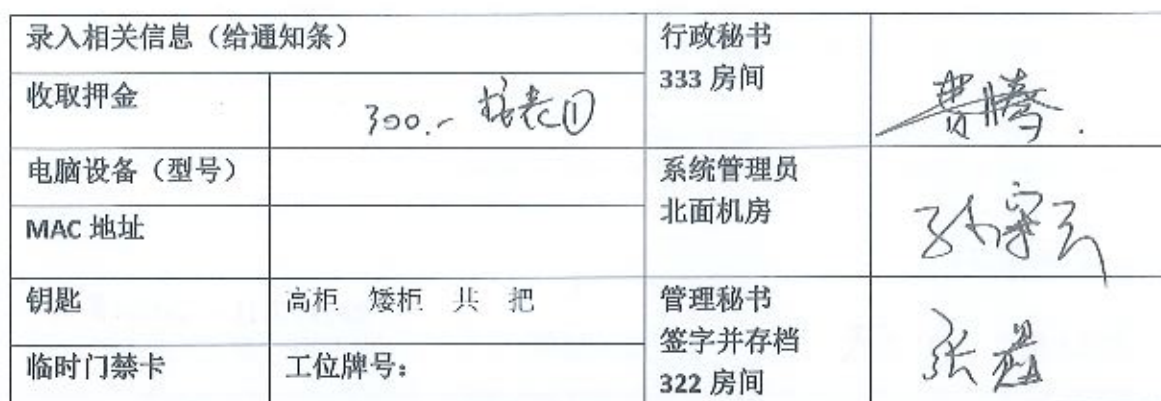 录入相关信息（给通知条）
行政秘书
333 房间
费腾.
收取押金
300.-
电脑设备（型号）
系统管理员
北面机房
MAC 地址
钥匙
高柜 矮柜 共 把
管理秘书
签字并存档
322 房间
张
临时门禁卡
工位牌号：